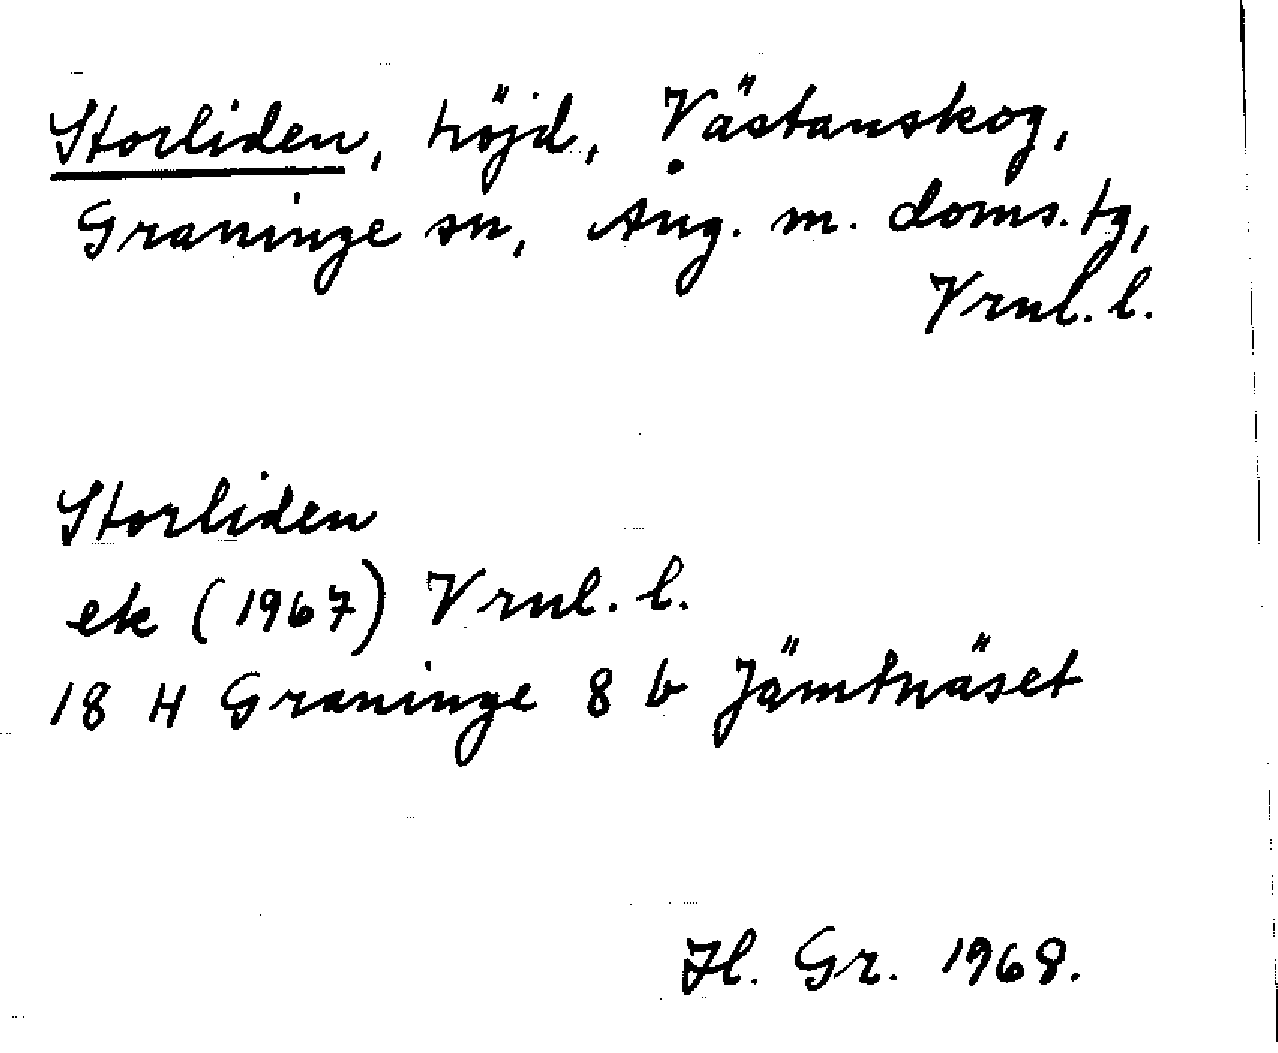 Storliden, höjd, Västanskog,
Graninge sn, Ång. m. doms. tg,
Vrnl. l.
Storliden
ek (1967) Vrnl. l.
18 H Graninge 8 b Jämtnäset
Hl. Gr. 1968.